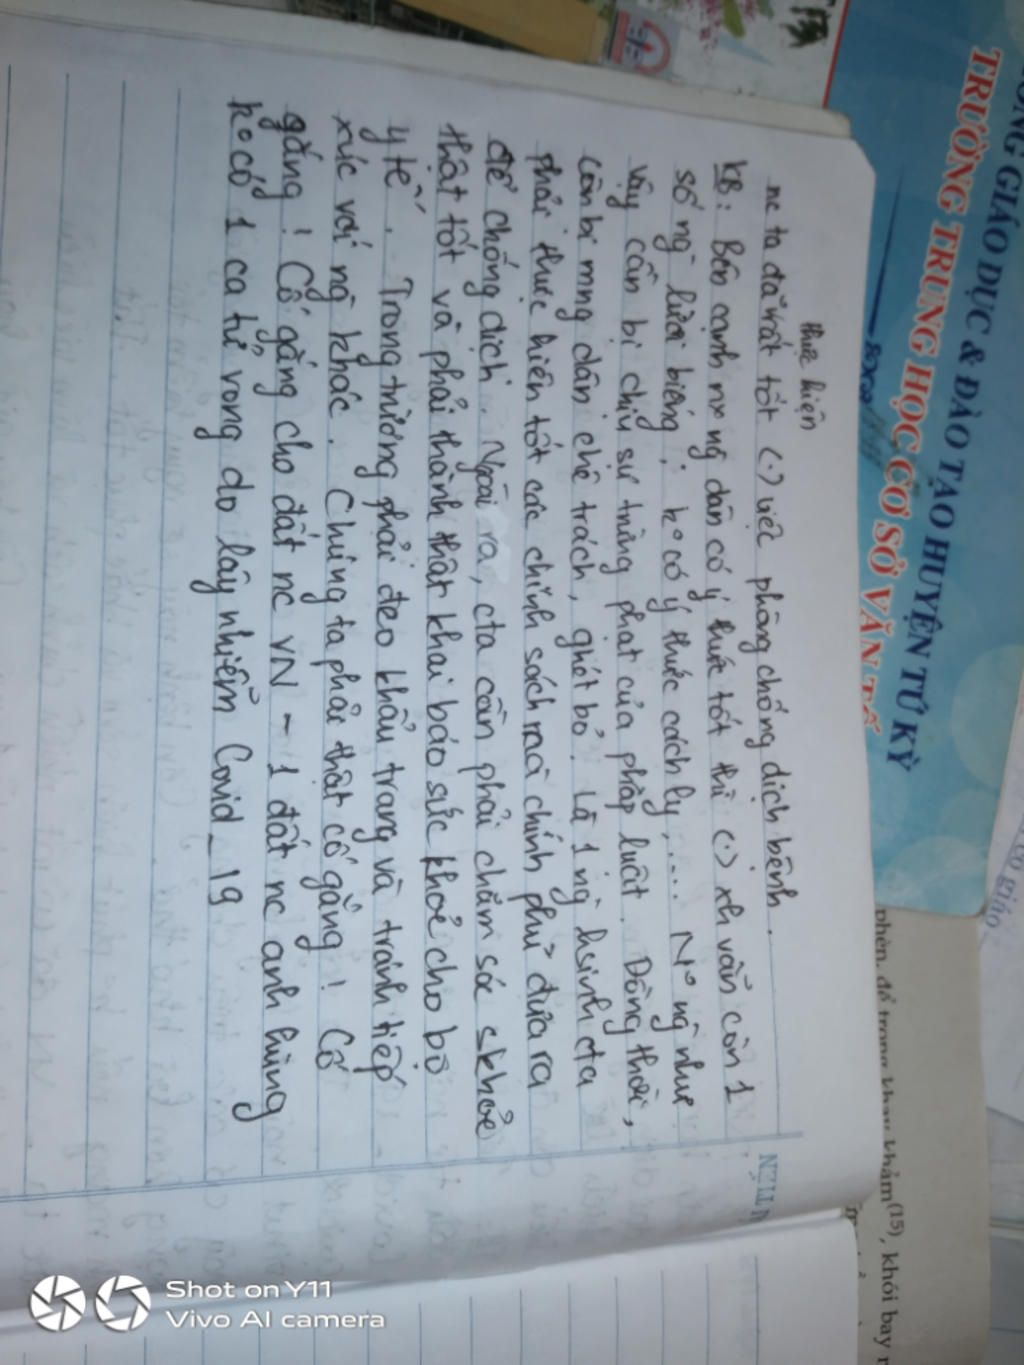 thực hiện
nc ta đã rất tốt (.) việc phòng chống dịch bệnh.
KB: Bên cạnh nx ng dân có ý thức tốt thì (.) xh vẫn còn 1
số ng lười biếng; ko có ý thức cách ly,.... N° ng như
vậy cần bị chịu sự trừng phạt của pháp luật. Đồng thời,
còn bị mng dân chê trách, ghét bỏ. Là 1 ng hsinh cta
phải thực hiện tốt các chính sách mà chính phủ đưa ra
để chống dịch. Ngoài ra, cta cần phải chăm sóc skhỏe
thật tốt và phải thành thật khai báo sức khoẻ cho bộ
y tế. Trong trường phải đeo khẩu trang và tránh tiếp
xúc với ng khác. Chúng ta phải thật cố gắng! Cố
gắng! Cố gắng cho đất nc VN - 1 đất nc anh hùng
ko có 1 ca tử vong do lây nhiễm Covid_19
GIÁO DỤC & ĐÀO TẠO HUYỆN TỨ KỲ
TRƯỜNG TRUNG HỌC CƠ SỞ VĂN TỐ
cô giáo
phèn, để trong khay khảm(15), khói bay
Shot on Y11
Vivo AI camera